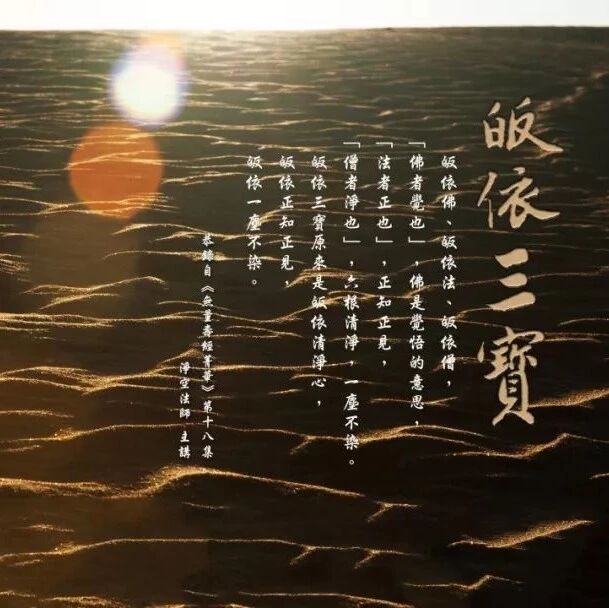 皈依三寶
皈依佛、皈依法、皈依僧，
「佛者覺也」，佛是覺悟的意思，
「法者正也」，正知正見，
「僧者淨也」，六根清淨，一塵不染。
皈依三寶原來是皈依清淨心，
皈依正知正見，
皈依一塵不染。
恭錄自《無量壽經菁華》第十八集
淨空法師 主講